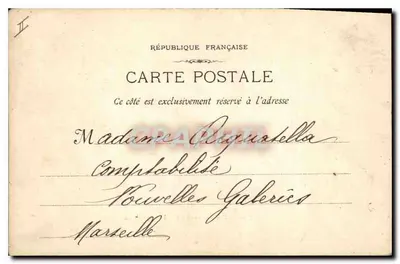 II
RÉPUBLIQUE FRANÇAISE
CARTE POSTALE
Ce côté est exclusivement réservé à l'adresse
Madame Acquatella
Comptabilité
Nouvelles Galeries
Marseille